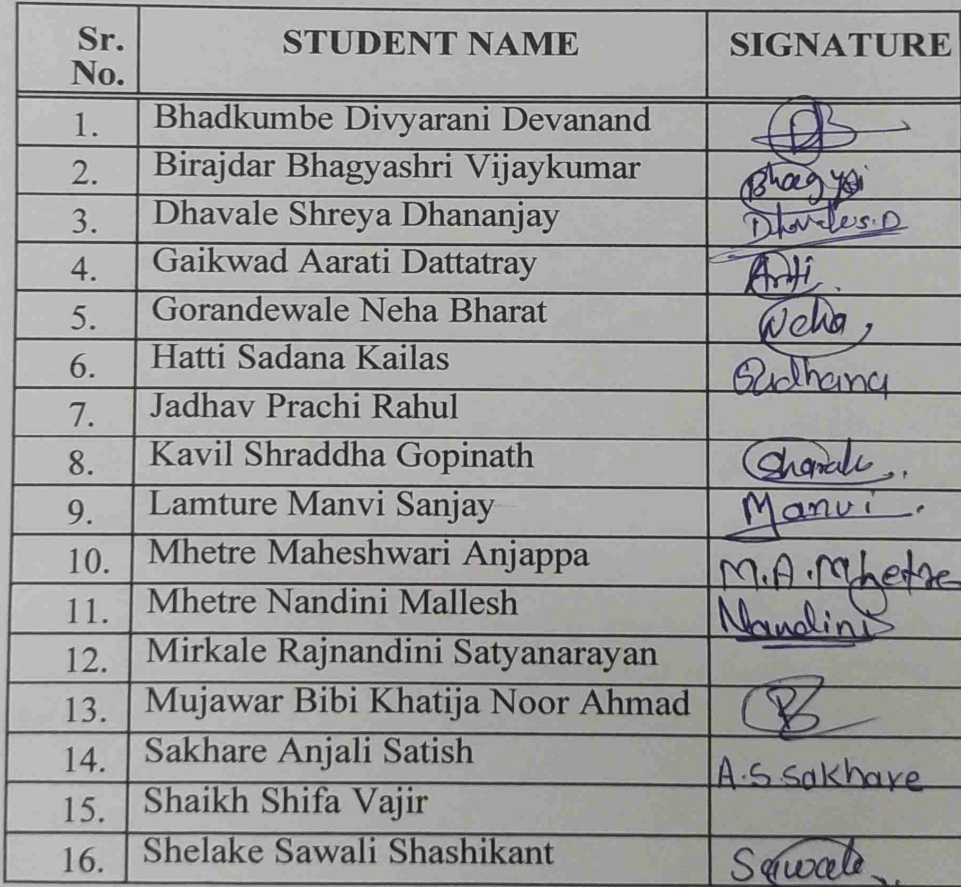 Sr. No. STUDENT NAME SIGNATURE
1. Bhadkumbe Divyarani Devanand
2. Birajdar Bhagyashri Vijaykumar
3. Dhavale Shreya Dhananjay Dhavale S.D
4. Gaikwad Aarati Dattatray Arti
5. Gorandewale Neha Bharat Neha
6. Hatti Sadana Kailas Sadhana
7. Jadhav Prachi Rahul
8. Kavil Shraddha Gopinath
9. Lamture Manvi Sanjay Manvi.
10. Mhetre Maheshwari Anjappa M.A.Mhetre
11. Mhetre Nandini Mallesh Nandini
12. Mirkale Rajnandini Satyanarayan
13. Mujawar Bibi Khatija Noor Ahmad
14. Sakhare Anjali Satish A.S.Sakhare
15. Shaikh Shifa Vajir
16. Shelake Sawali Shashikant Sawali